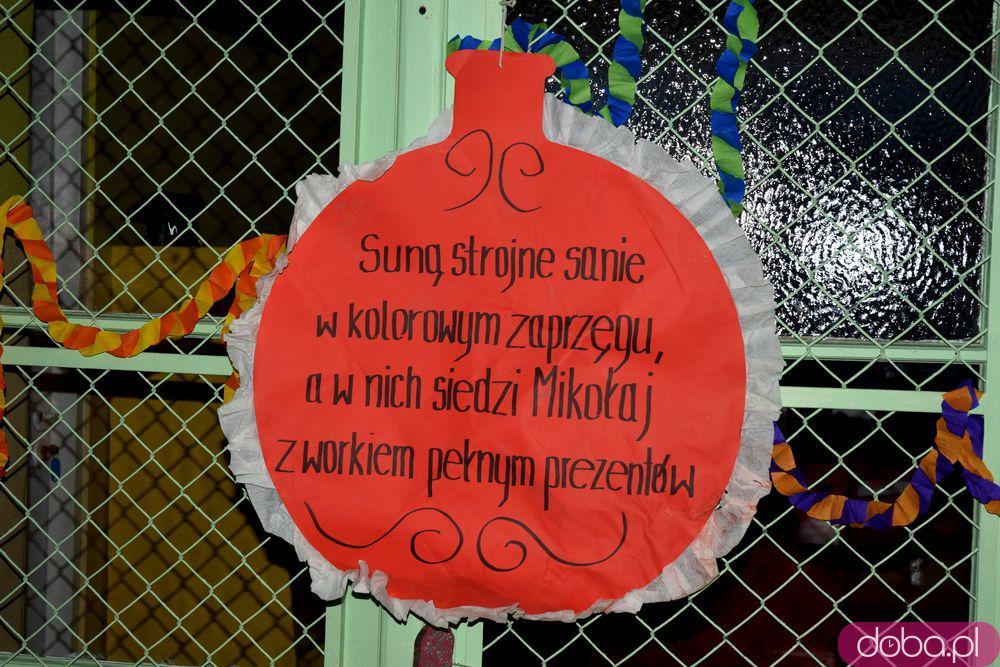 Suną strojne sanie
w kolorowym zaprzęgu,
a w nich siedzi Mikołaj
z workiem pełnym prezentów
doba.pl